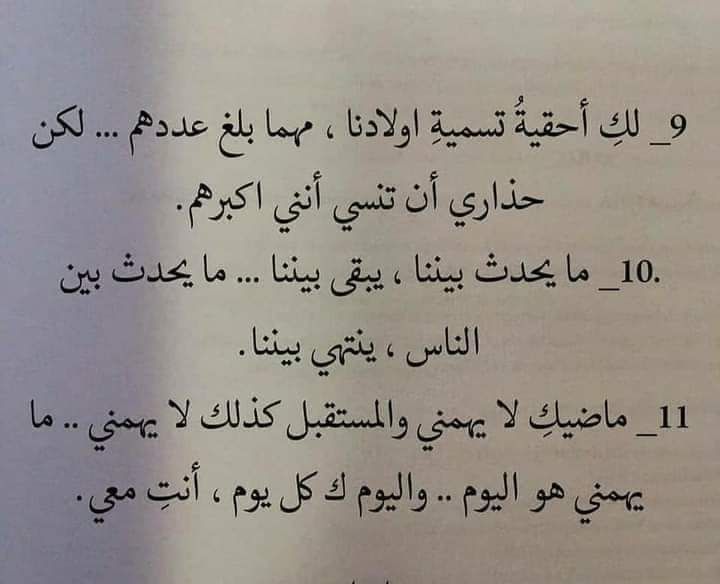 9_ لكِ أحقيةُ تسميةِ اولادنا ، مهما بلغ عددهم ... لكن
حذاري أن تنسي أنني اكبرهم .
10_. ما يحدث بيننا ، يبقى بيننا ... ما يحدث بين
الناس ، ينتهي بيننا .
11_ ماضيكِ لا يهمني والمستقبل كذلك لا يهمني .. ما
يهمني هو اليوم .. واليوم ك كل يوم ، أنتِ معي .